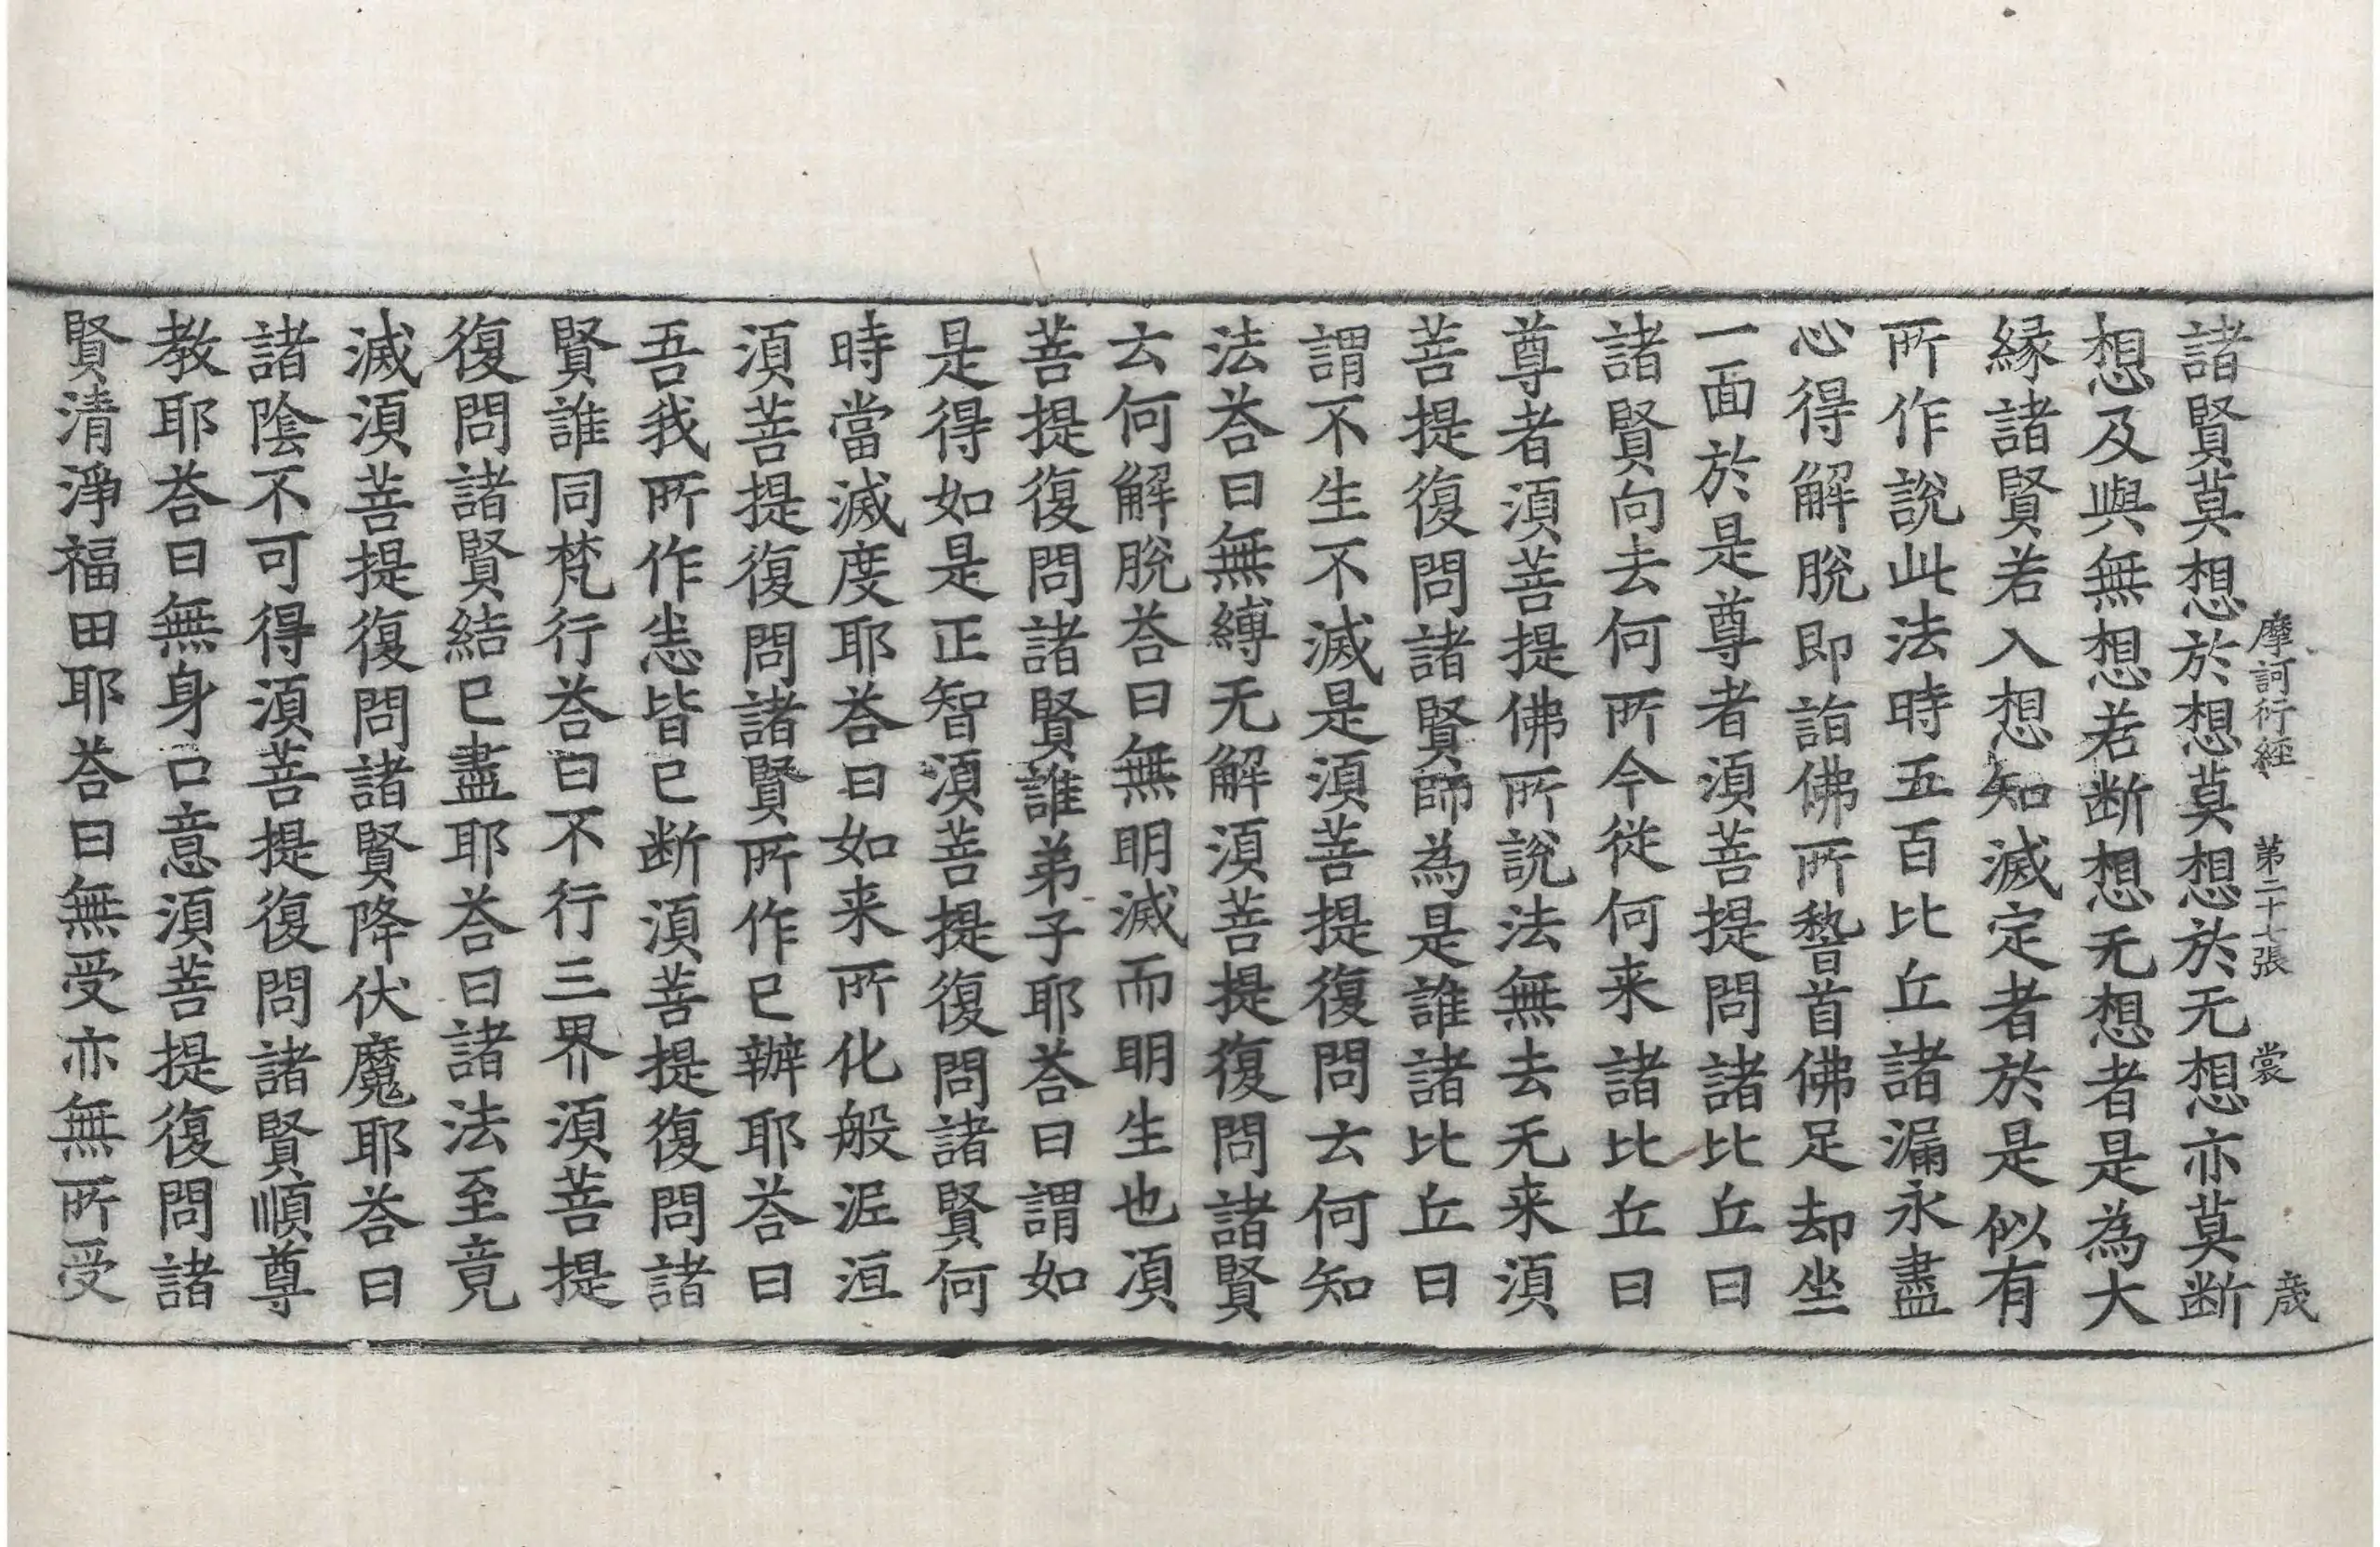 摩訶衍經　第二十七張　裳　歳
諸賢莫想於想莫想於无想亦莫断
想及與無想若断想无想者是為大
縁諸賢若入想知滅定者於是似有
所作說此法時五百比丘諸漏永盡
心得解脫即詣佛所𥡴首佛足却坐
一面於是尊者湏菩提問諸比丘曰
諸賢向去何所今從何来諸比丘曰
尊者湏菩提佛所說法無去无来湏
菩提復問諸賢師為是誰諸比丘曰
謂不生不滅是湏菩提復問云何知
法荅曰無縛无解湏菩提復問諸賢
云何解脫荅曰無明滅而明生也湏
菩提復問諸賢誰弟子耶荅曰謂如
是得如是正智湏菩提復問諸賢何
時當滅度耶荅曰如来所化般泥洹
湏菩提復問諸賢所作已辦耶荅曰
吾我所作恙皆已断湏菩提復問諸
賢誰同梵行荅曰不行三界湏菩提
復問諸賢結已盡耶荅曰諸法至竟
滅湏菩提復問諸賢降伏魔耶荅曰
諸陰不可得湏菩提復問諸賢順尊
教耶荅曰無身口意湏菩提復問諸
賢清淨福田耶荅曰無受亦無所受